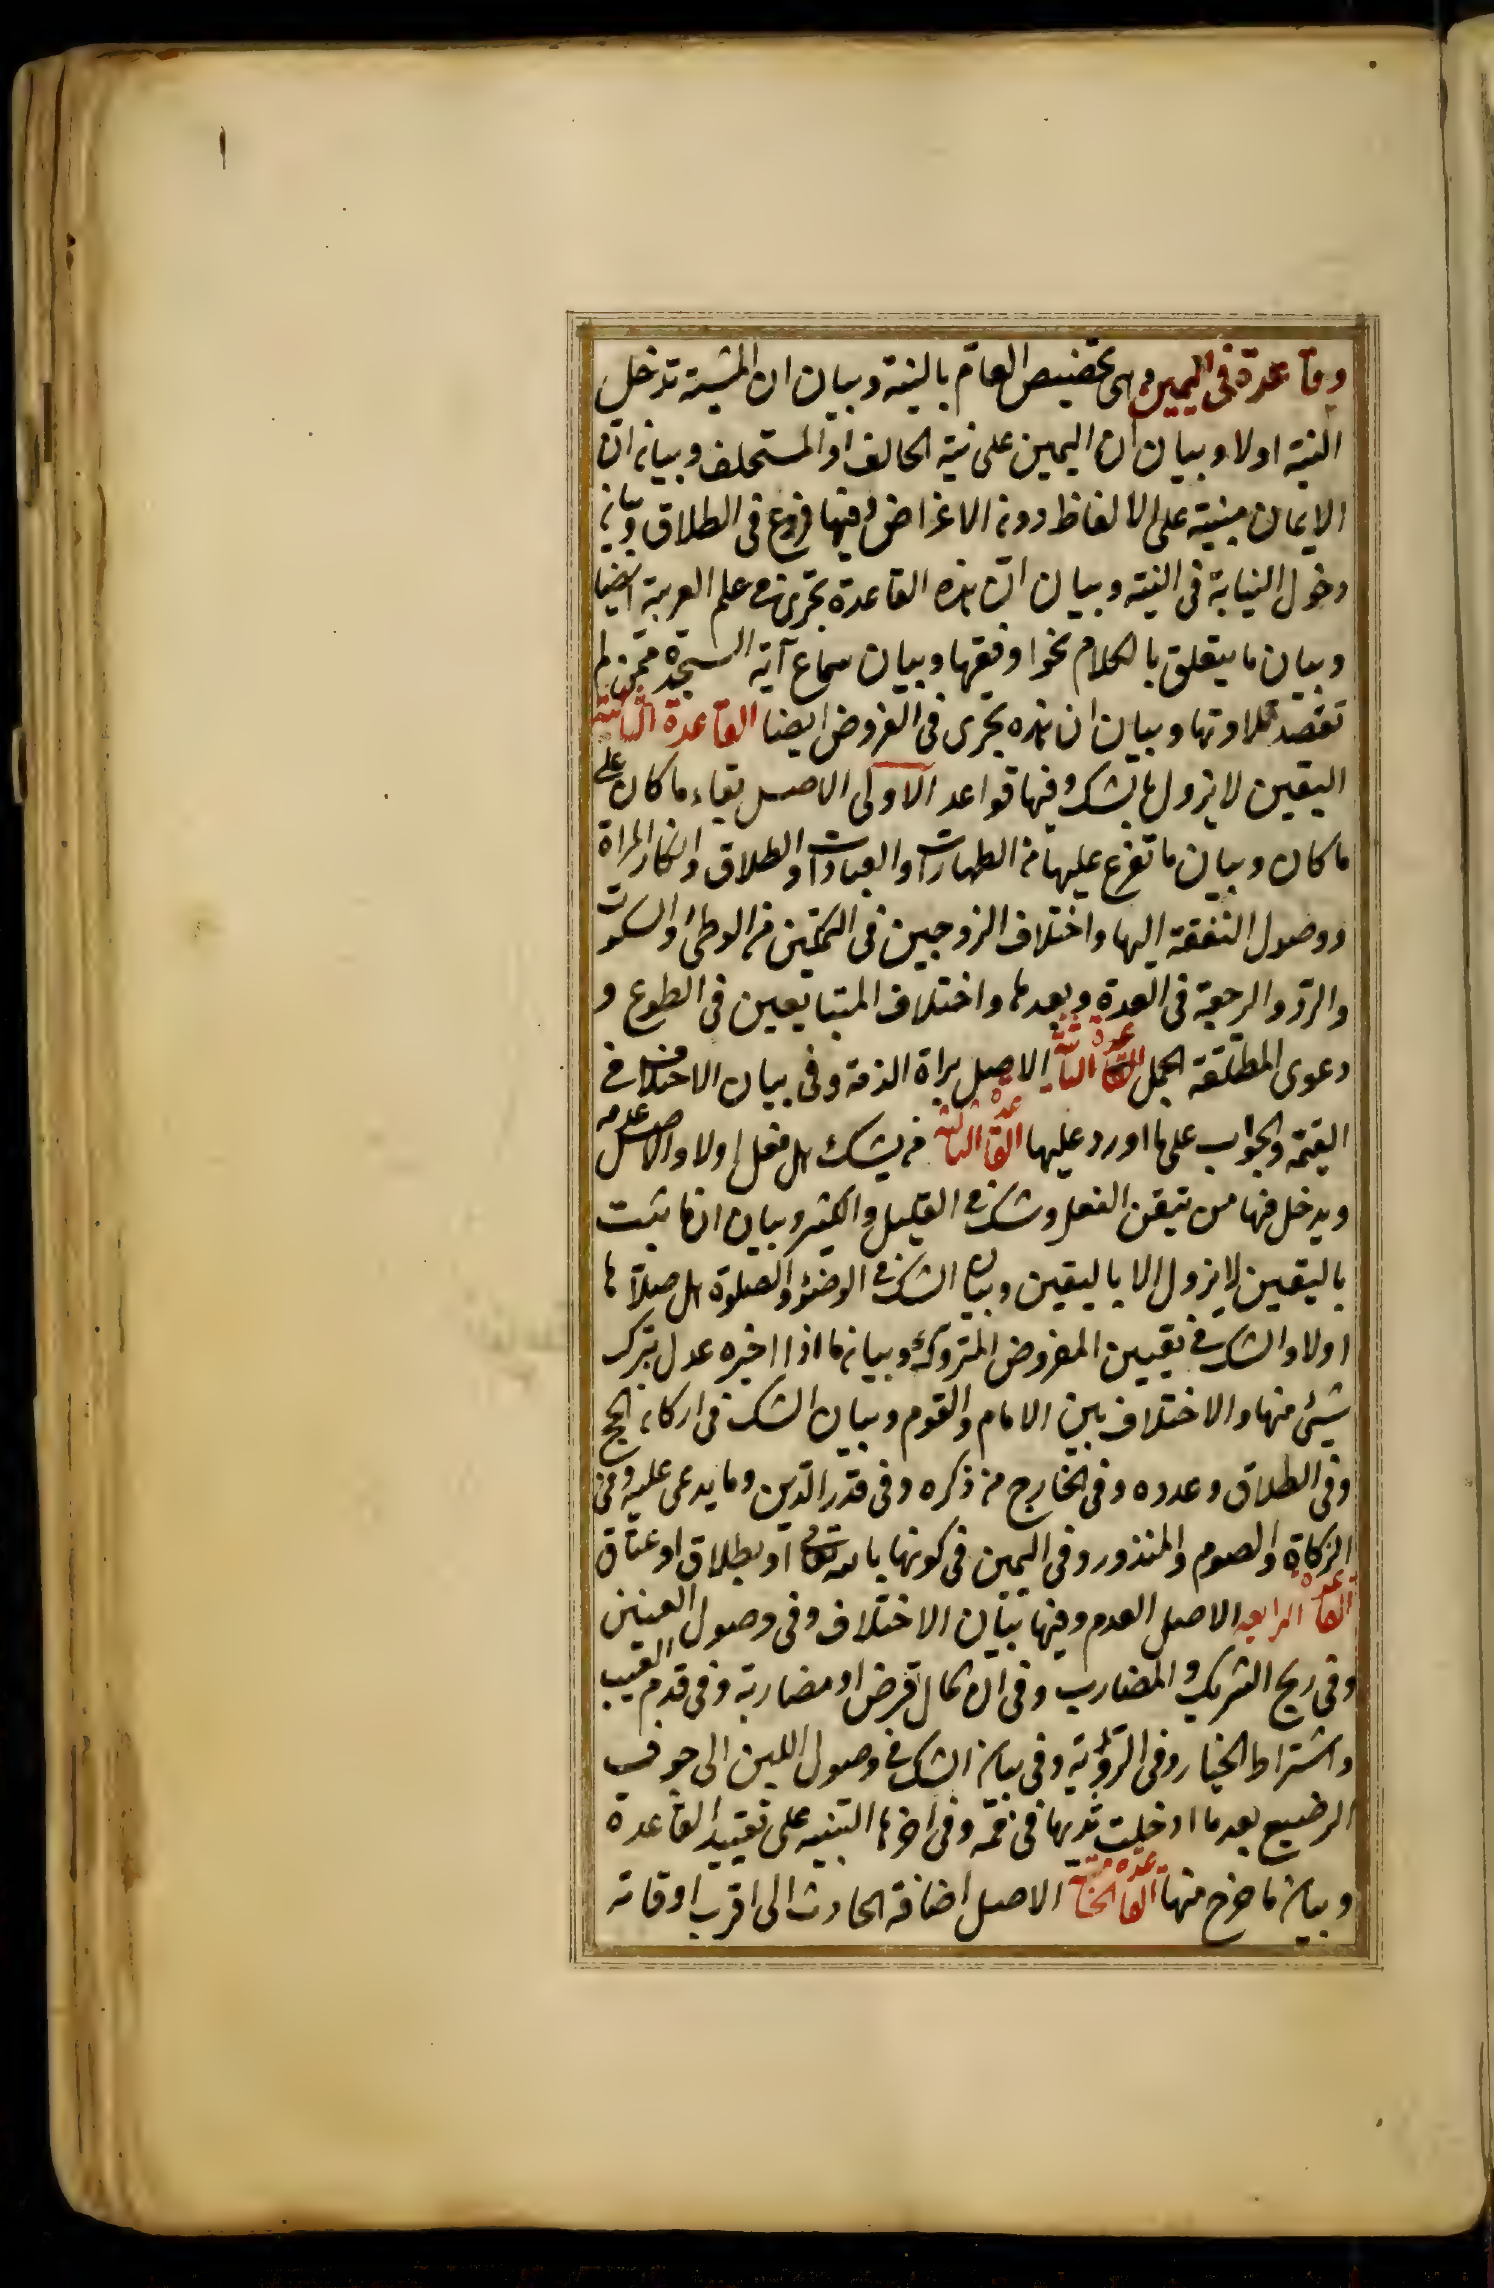 وقاعدة فى اليمين وهى تخصيص العام بالنية وبيان ان المشية تدخل
النية اولا وبيان ان اليمين على نية الحالف او المستحلف وبيان ان
الايمان مبنية على الالفاظ دون الاغراض وفيها فروع فى الطلاق وبيان
دخول النيابة فى النية وبيان ان هذه القاعدة تجرى فى علم العربية ايضا
وبيان ما يتعلق بالكلام نحوا وفقها وبيان سماع آية السجدة ممن لم
تقصد تلاوتها وبيان ان هذه تجرى فى العروض ايضا القاعدة الثالثة
اليقين لا يزول بالشك وفيها قواعد الاولى الاصل بقاء ما كان على
ما كان وبيان ما تفرع عليها من الطهارات والعبادات والطلاق وانكار المراة
ووصول النفقة اليها واختلاف الزوجين فى التمكين من الوطئ والسكوت
والرد والرجعة فى العدة وبعدها واختلاف المتبايعين فى الطوع و
دعوى المطلقة الحمل القاعدة الثانية الاصل براة الذمة وفى بيان الاختلاف فى
القيمة والجواب على ما اورد عليها القاعدة الثالثة من يشك هل فعل اولا والاصل عدمه
ويدخل فيها من تيقن الفعل وشك فى القليل والكثير وبيان ان ما يثبت
باليقين لا يزول الا باليقين وبيان الشك فى الوضوء والصلوة هل صلاها
اولا والشك فى تعيين المفروض المتروك وبيان ما اذا اخبره عدل بترك
شيئ منها والاختلاف بين الامام والقوم وبيان الشك فى اركان الحج
وفى الطلاق وعدده وفى الخارج من ذكره وفى قدر الدين وما يدعى عليه وفى
الزكاة والصوم والمنذور وفى اليمين فى كونها بالله تعالى او بطلاق او عتاق
القاعدة الرابعة الاصل العدم وفيها بيان الاختلاف وفى وصول العنين
وفى ربح الشريك والمضارب وفى ان المال قرض او مضاربة وفى قدم العيب
واشتراط الخيار وفى الرؤية وفى بيان الشك فى وصول اللبن الى جوف
الرضيع بعد ما ادخلت ثديها فى فمه وفى اخرها التنبيه على تقييد القاعدة
وبيان ما خرج منها القاعدة الخامسة الاصل اضافة الحادث الى اقرب اوقاته